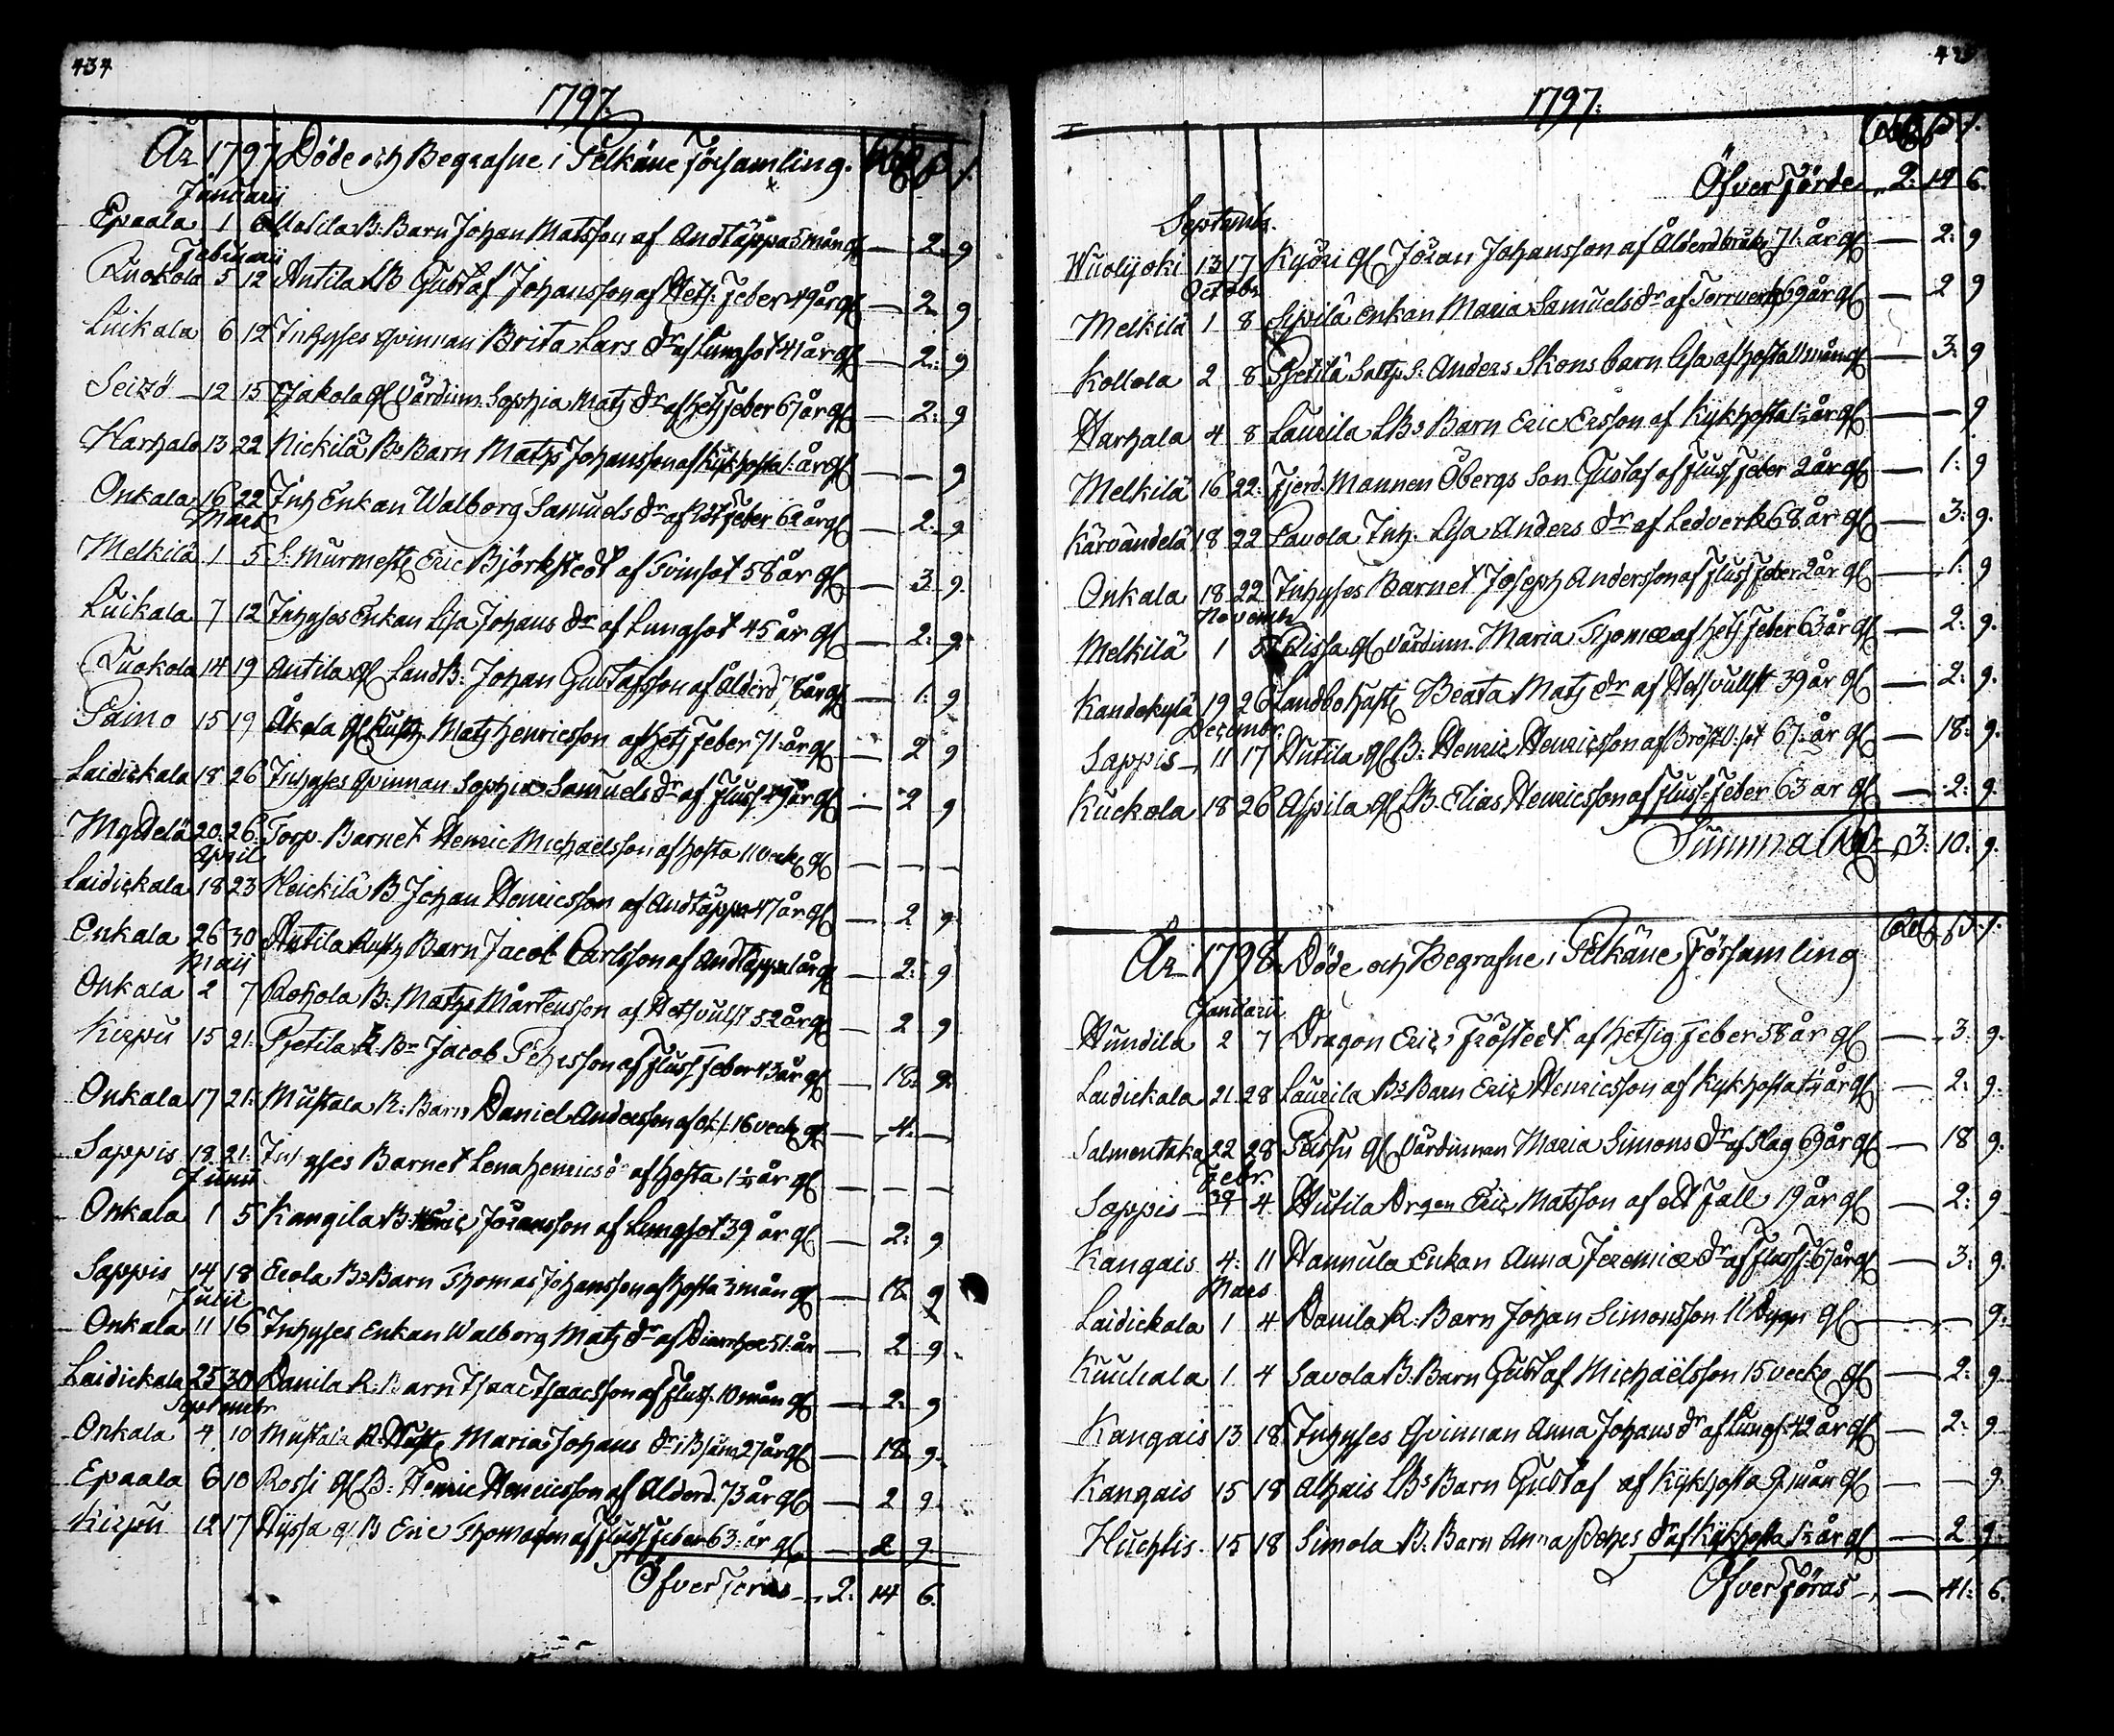 434
1797.
År 1797 Döde och Begrafne i Pelkäne Församling.
Januarij
Epaala 1 6 B: Barn Johan Matsson af Andtäppa 5 mån gl — 2: 9
Februarii
Luokola 5 12 Antila LB Gustaf Johansson af Hets: Feber 49 år gl — 2 9
Luikala 6 12 Inhyses qvinnan Brita Lars dr af Lungsot 41 år gl — 2: 9
Seizö 12 15 Jakola gl Värdinn. Sophia Mats dr af hets feber 67 år gl — 2: 9
Harhala 13 22 Nickilä Bs Barn Matts Johansson af Kikhosta 1: år gl — — 9
Onkala 16 22 Inh Enkan Walborg Samuels dr af Röt Feber 62 år gl — 2: 9
Mars
Melkilä 1 5 S: Murmest Eric Björkstedt af Tvinsot 58 år gl — 3 9.
Luikala 7 12 Inhyses Enkan Lisa Johans dr af Lungsot 45 år gl — 2: 9.
Luokola 14 19 Antila gl LandB: Johan Gustafsson af Ålderd. 78 år gl — 1: 9
Paino 15 19 Äkola gl Rusth. Mats Henricsson af hets feber 71: år gl — 2 9
Laidickala 18 26 Inhyses qvinnan Sophia Samuels dr af Fluss. 49 år gl — 2 9
20. 26. Torp. Barnet Henric Michaëlsson af hosta 11 veck gl — — —
April
Laidickala 18 23 Heickilä B. Johan Henricsson af Andtäppa 47 år gl — 2 9
Onkala 26 30 Antila Rusth Barn Jacob Carlsson af Andtäppa 1 år gl — 2: 9
Maij
Onkala 2 7 Rohola B: Matts Mårtensson af Hets vulst 52 år gl — 2 9
Kirpu 15 21. Pjetila R. Br Jacob Pehrsson af Fluss Feber 43 år gl — 18: 9.
Onkala 17 21: Mustala R: Barn Daniel Andersson af 16 veck gl — 4. —
Sappis 18 21: Inhyses Barnet Lena Henrics dr af hosta 1½ år gl — — —
Junii
Onkala 1 5 Kangila B: Henric Jöransson af Lungsot 39 år gl — 2: 9
Sappis 14 18 Erola Bs Barn Thomas Johansson af hosta 3 mån gl — 18: 9
Julii
Onkala 11 16 Inhyses Enkan Walborg Mats dr af Diarrhoe 51: år — 2 9.
Laidickala 25 30 Danila R. Barn Isaac Isaacsson af Fluss. 10 mån gl — 2: 9
Septembr
Onkala 4. 10 Mustala R. Hust Maria Johans dr i Barns. 27 år gl — 18: 9.
Epaala 6 10 Rossi gl B: Henric Henricsson af Ålderd. 73 år gl — 2 9.
Kirpu 12 17 Hyssa gl B Eric Thomasson af Fluss Feber 63: år gl — 2 9
Öfverföras — 2: 14 6.
1797:
Öfverförde — 2: 14 6.
Septembr.
Wuolijoki 13 17 Kyöri gl Jöran Johansson af Ålderd bräk 71: år gl — 2: 9
Octobr
Melkilä 1 8 Sipilä Enkan Maria Samuels dr af Torrverk 69 år gl — 2 9
Kollola 2 8 Pjetilä Anders Skons barn Lisa af hosta mån gl — 3: 9
Harhala 4 8 Laurila LBs Barn Eric Ersson af Kykhosta 1½ år gl — — 9
Melkilä 16 22: Fjerd. Mannen Öbergs Son Gustaf af Fluss Feber 2 år gl — 1: 9
Kärvändelä 18 22 Savola Inh. Lisa Anders dr af Ledverk 68. år gl — 3: 9.
Onkala 18 22 Inhyses Barnet Joseph Andersson af Fluss Feber 2 år gl — 1: 9
Novembr
Melkilä 1 5 Rissa gl Värdinn. Maria Thomæ af hets Feber 63 år gl — 2: 9.
Kandokylä 19 26 Landbo hustr Beata Mats dr af Hets vulst 39 år gl — 2: 9.
Decembr.
Sappis 11 17 Hutila gl B: Henric Henricsson af Bröst V: sot 67: år gl — 18: 9.
Kuckola 18 26 Aspila gl LB. Elias Henricsson af Fluss: Feber 63 år gl — 2: 9.
Summa — 3: 10: 9.
År 1798. Döde och Begrafne i Pelkäne Församling
Januarii
Hundila 2 7 Dragon Eric Fröstedt af hetsig Feber 58 år gl — 3: 9.
Laidickala 21. 28 Laurila Bs Barn Eric Henricsson af Kykhosta år gl — 2: 9.
Salmentaka 22 28 Perssu gl Värdinnan Maria Simons dr af Slag 69 år gl — 18 9.
Febr.
Sappis 4 Hutila Drgen Eric Matsson af ett Fall 19 år gl — 2: 9
Kangais 4: 11 Hannula Enkan Anna Jeremiæ dr af Fluss F: 67 år gl — 3: 9.
Mars
Laidickala 1 4 Danila R. Barn Johan Simonsson 11 Dygn gl — — 9.
Kuuliala 1 4 Savola B: Barn Gustaf Michaëlsson 15 veck gl — 2: 9.
Kangais 13 18. Inhyses Qvinnan Anna Johans dr af Lungs. 42 år gl — 2: 9
Kangais 15 18 Alhais LBs Barn Gustaf af Kykhosta 9 mån gl — — 9.
Huchtis 15 18 Simola B: Barn Anna dr af Kykhosta 1½ år gl — 2 9.
Öfverföras — 41: 6.